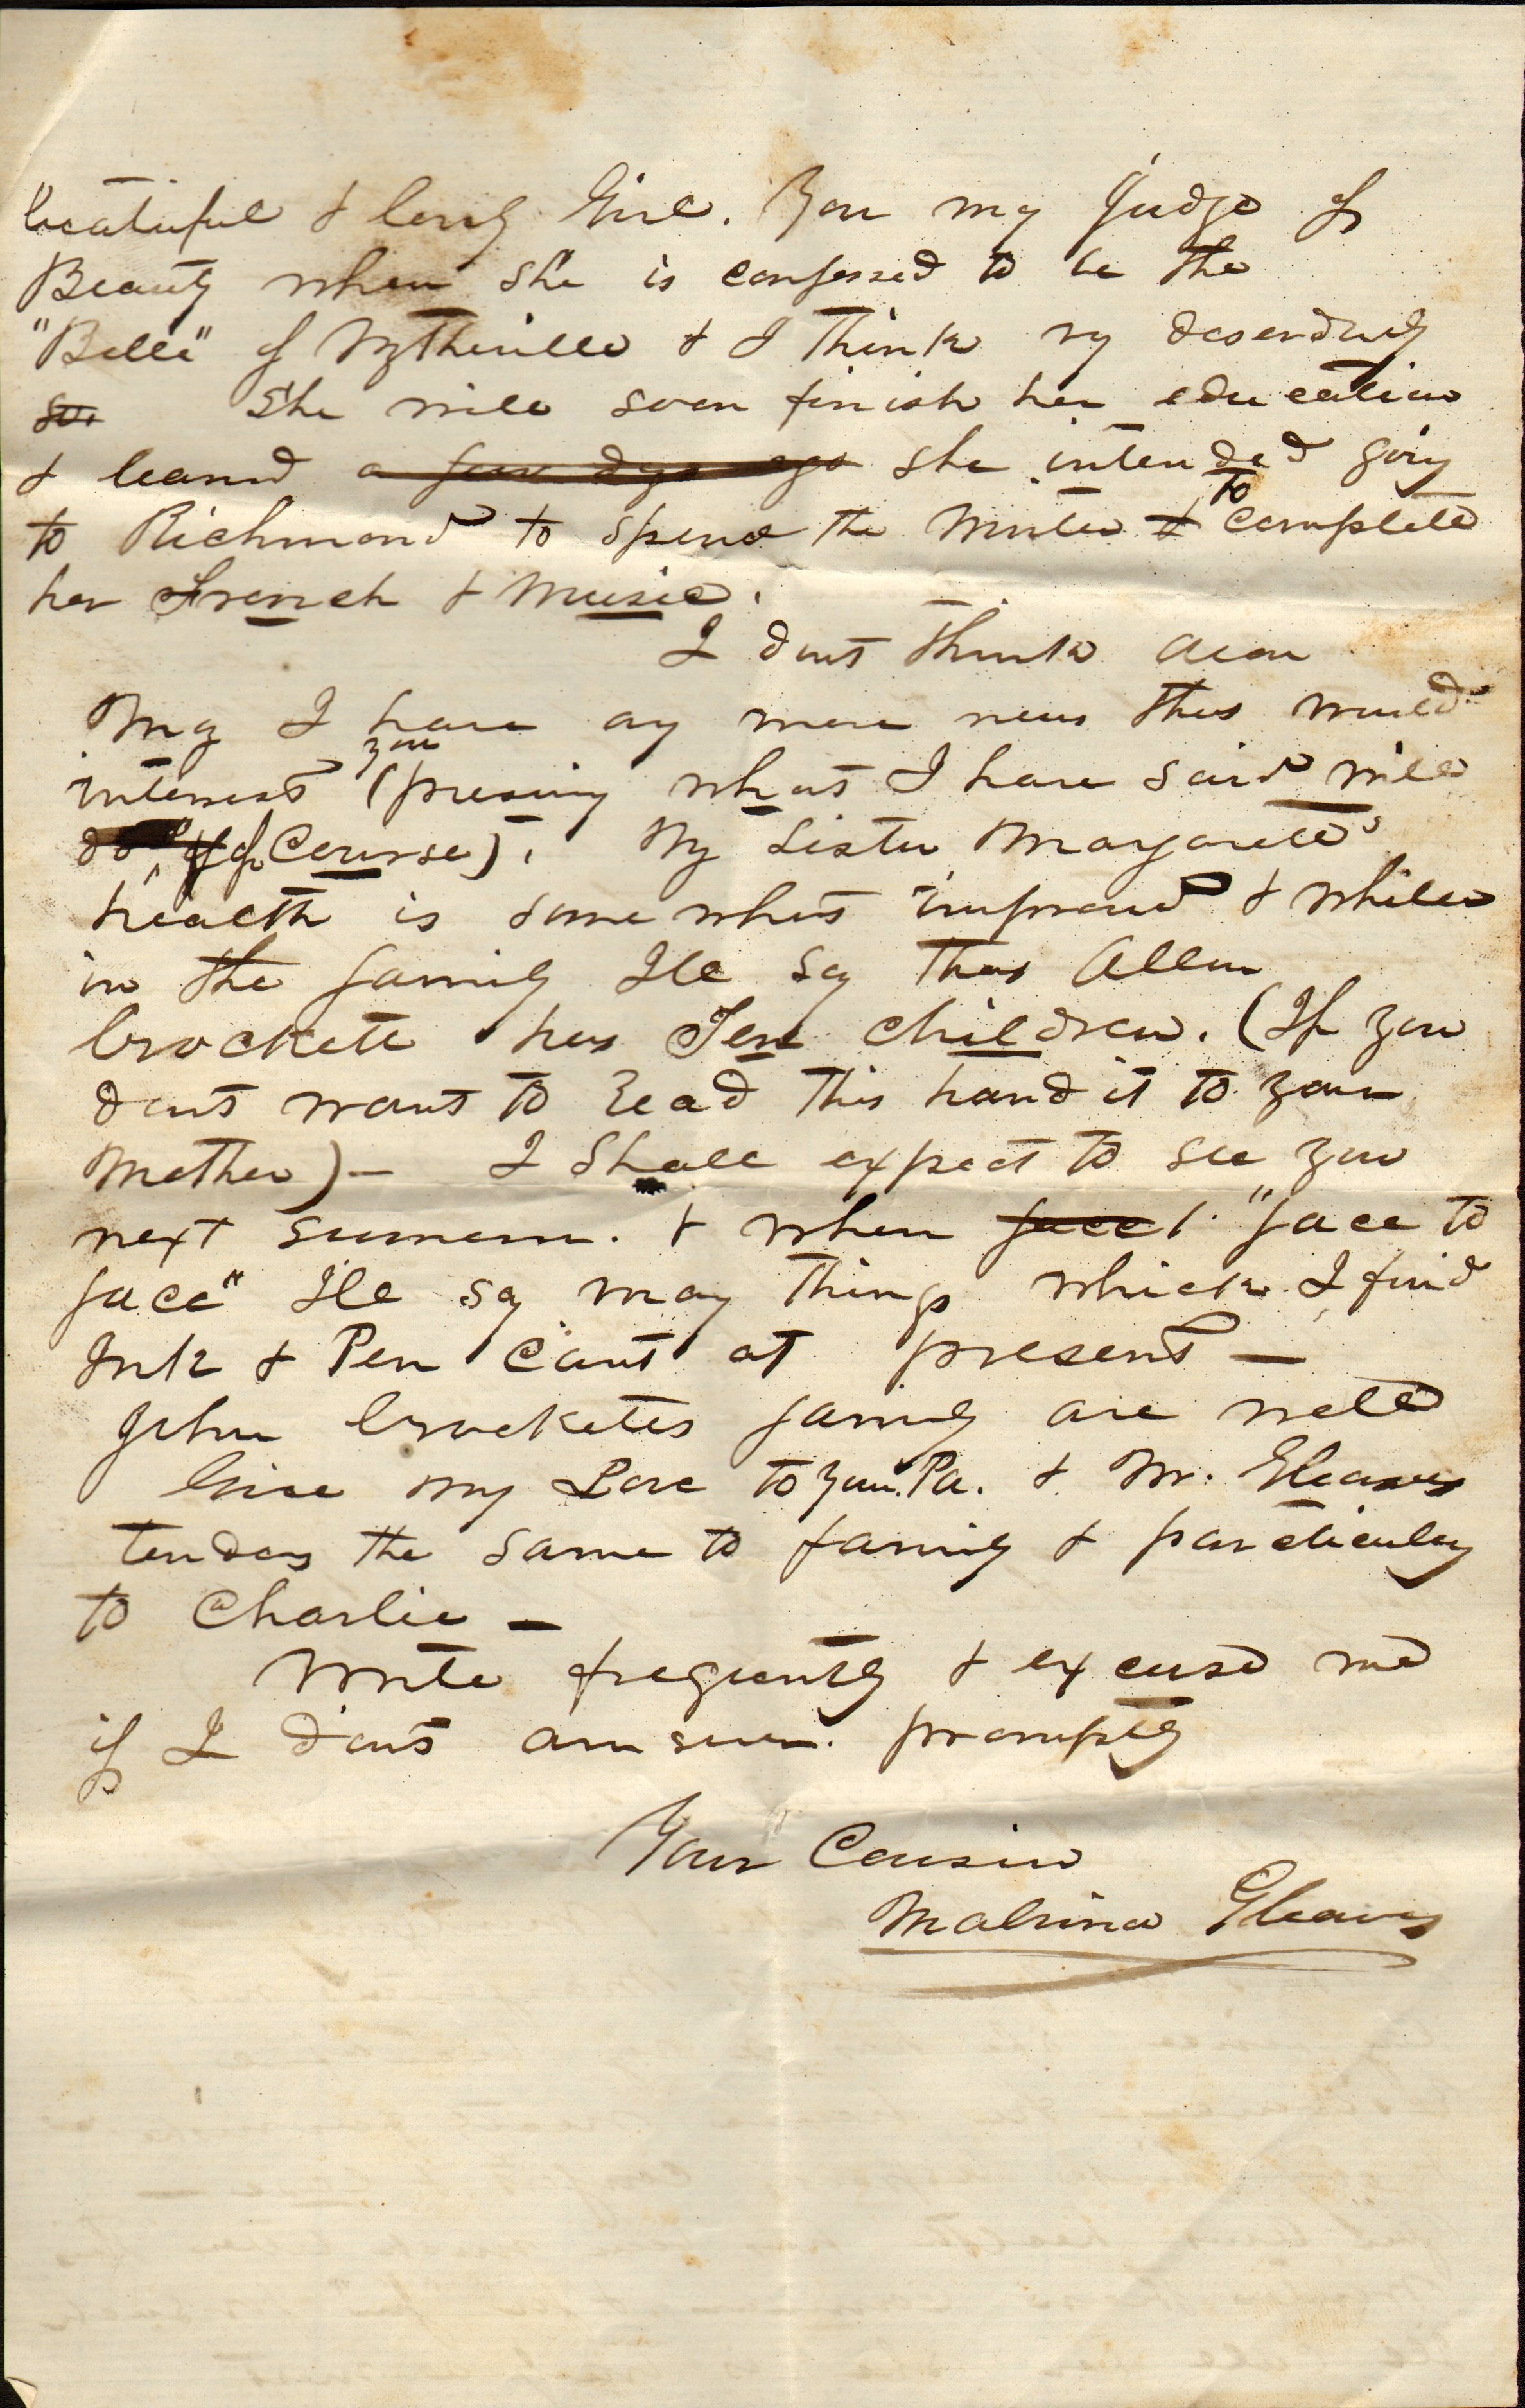 beatuful & lovly Girl. You my Judge of
Beauty when she is confessed to be the
"Belle" of Wytheville & I think vy deservdly
so. She will soon finish her education
& learnd a few dys ago she intended goiy
to Richmond to spend the Winter & to complete
her French & Music.
I dont think dear
I have ay more news that would
interest you (presuming what I have said will
do of Course). My Sister Margarett's
health is some what improved & while
in the famiy Ile say that Allen
Crockett has Ten children. (If you
dont want to read this hand it to your
Mother)— I Shall expect to see you
next summer. & when face "face to
face" Ile say may things which I find
Ink & Pen can't at present —
John Crocketts famiy are well
Give my Love to your Pa. & Mr. Gleaves
tenders the same to famiy & particulay
to Charlie —
Write frequently & excuse me
if I don't answer promptly
Your Cousin
Malvina Gleaves